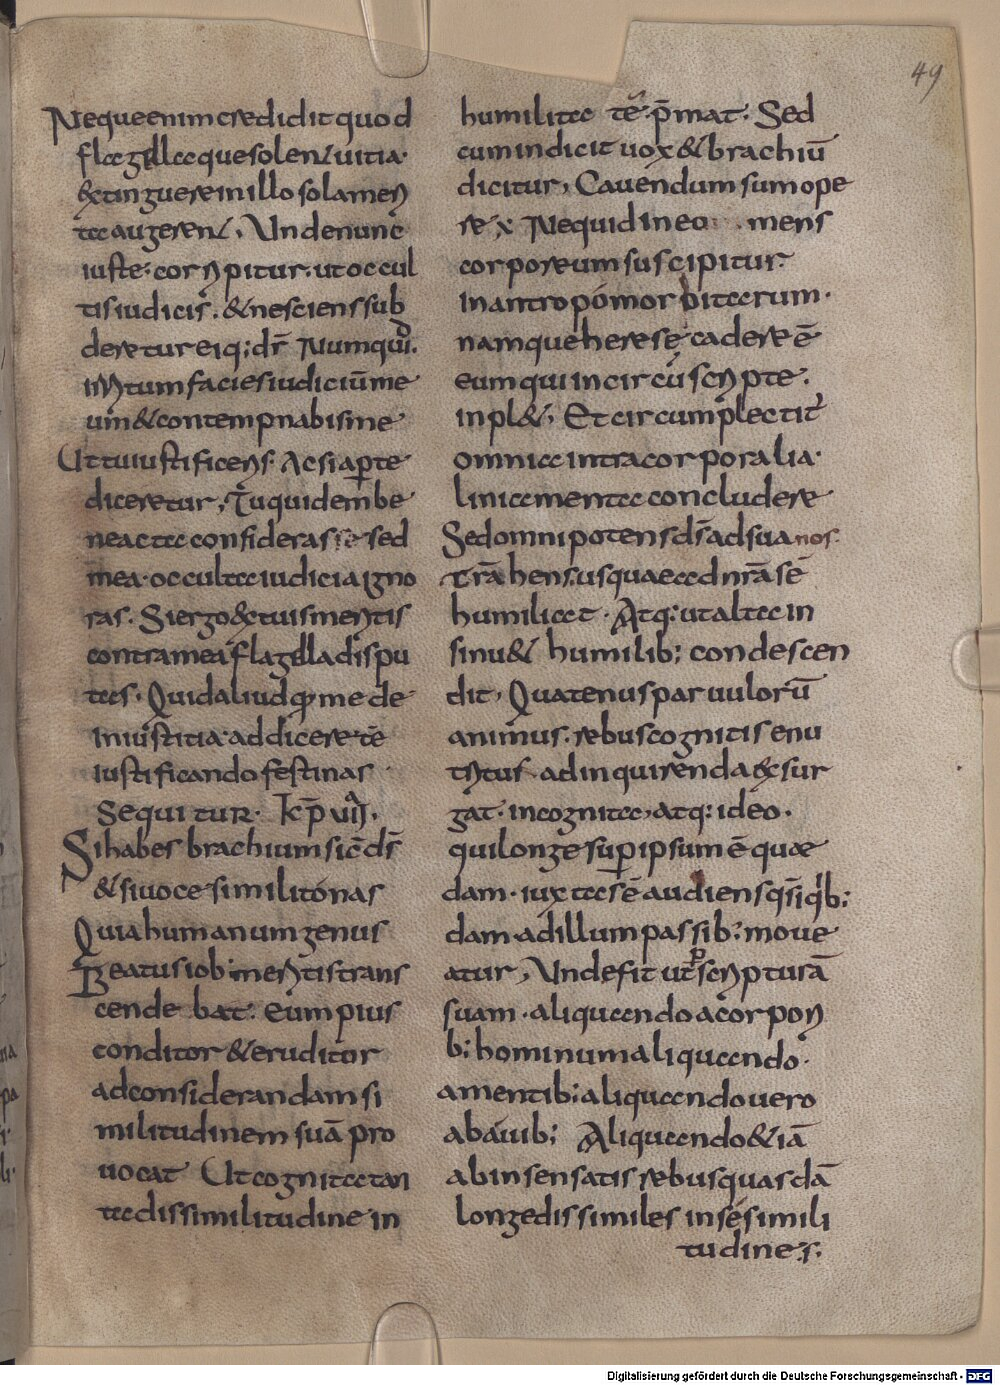 49
Neque enim credidit quod
flagella que solent uitia
extinguere in illo sola meri
ta augerent, Unde nunc
iuste corripitur. ut occul
tis iudiciis. & nesciens sub
deretur ei q; dr̄ Numquid
irritum facies iudiciū me
um & contempnabis me
Ut tu iustificeris. Ac si aperte
diceretur, Tu quidem be
ne acta consideras sed
mea occulta iudicia igno
ras. Si ergo ex tuis meritis
contra mea flagella dispu
tas. Quid aliud q̄ me de
iniustitia addicere te
iustificando festinas
Sequitur. k p̄ VIII.
Si habes brachium sic d̄s
& si uoce simili tonas
Quia humanum genus
Beatus iob meritis trans
cendebat. Eum pius
conditor & eruditor
ad considerandam si
militudinem suā pro
uocat Ut cognita tan
ta dissimilitudine in
humilitate p̄mat. Sed
cum indicit uox & brachiū
dicitur, Cauendum sum ope
re x Nequid in eo mens
corporeum suscipitur.
In antropomorphitarum
namque heresẽ cadere ē
eum qui incircūscripte
inpl&, Et circumplectit̄
omnia intra corporalia
liniamenta concludere
Sed omnipotens d̄s ad sua nos
Trāhens usquae ad n̄rā sē
humiliat. Atq: ut alta in
sinu& humilib; condescen
dit, Quatenus paruulorū
animus. rebus cognitis enu
tritus ad inquirenda exsur
gat. incognita, atq: ideo.
qui longe super ipsum ē quae
dam. iuxta sē audiens q̄si q̄b;
dam ad illum passib; moue
atur, Unde fit ut per scripturā
suam. aliquando a corpori
b; hominum aliquando.
a mentib; aliquando uero
ab auib; Aliquando & iā
ab insensatis rebus quasdā
longe dissimiles in se simili
tudines.
Digitalisierung gefördert durch die Deutsche Forschungsgemeinschaft - DFG